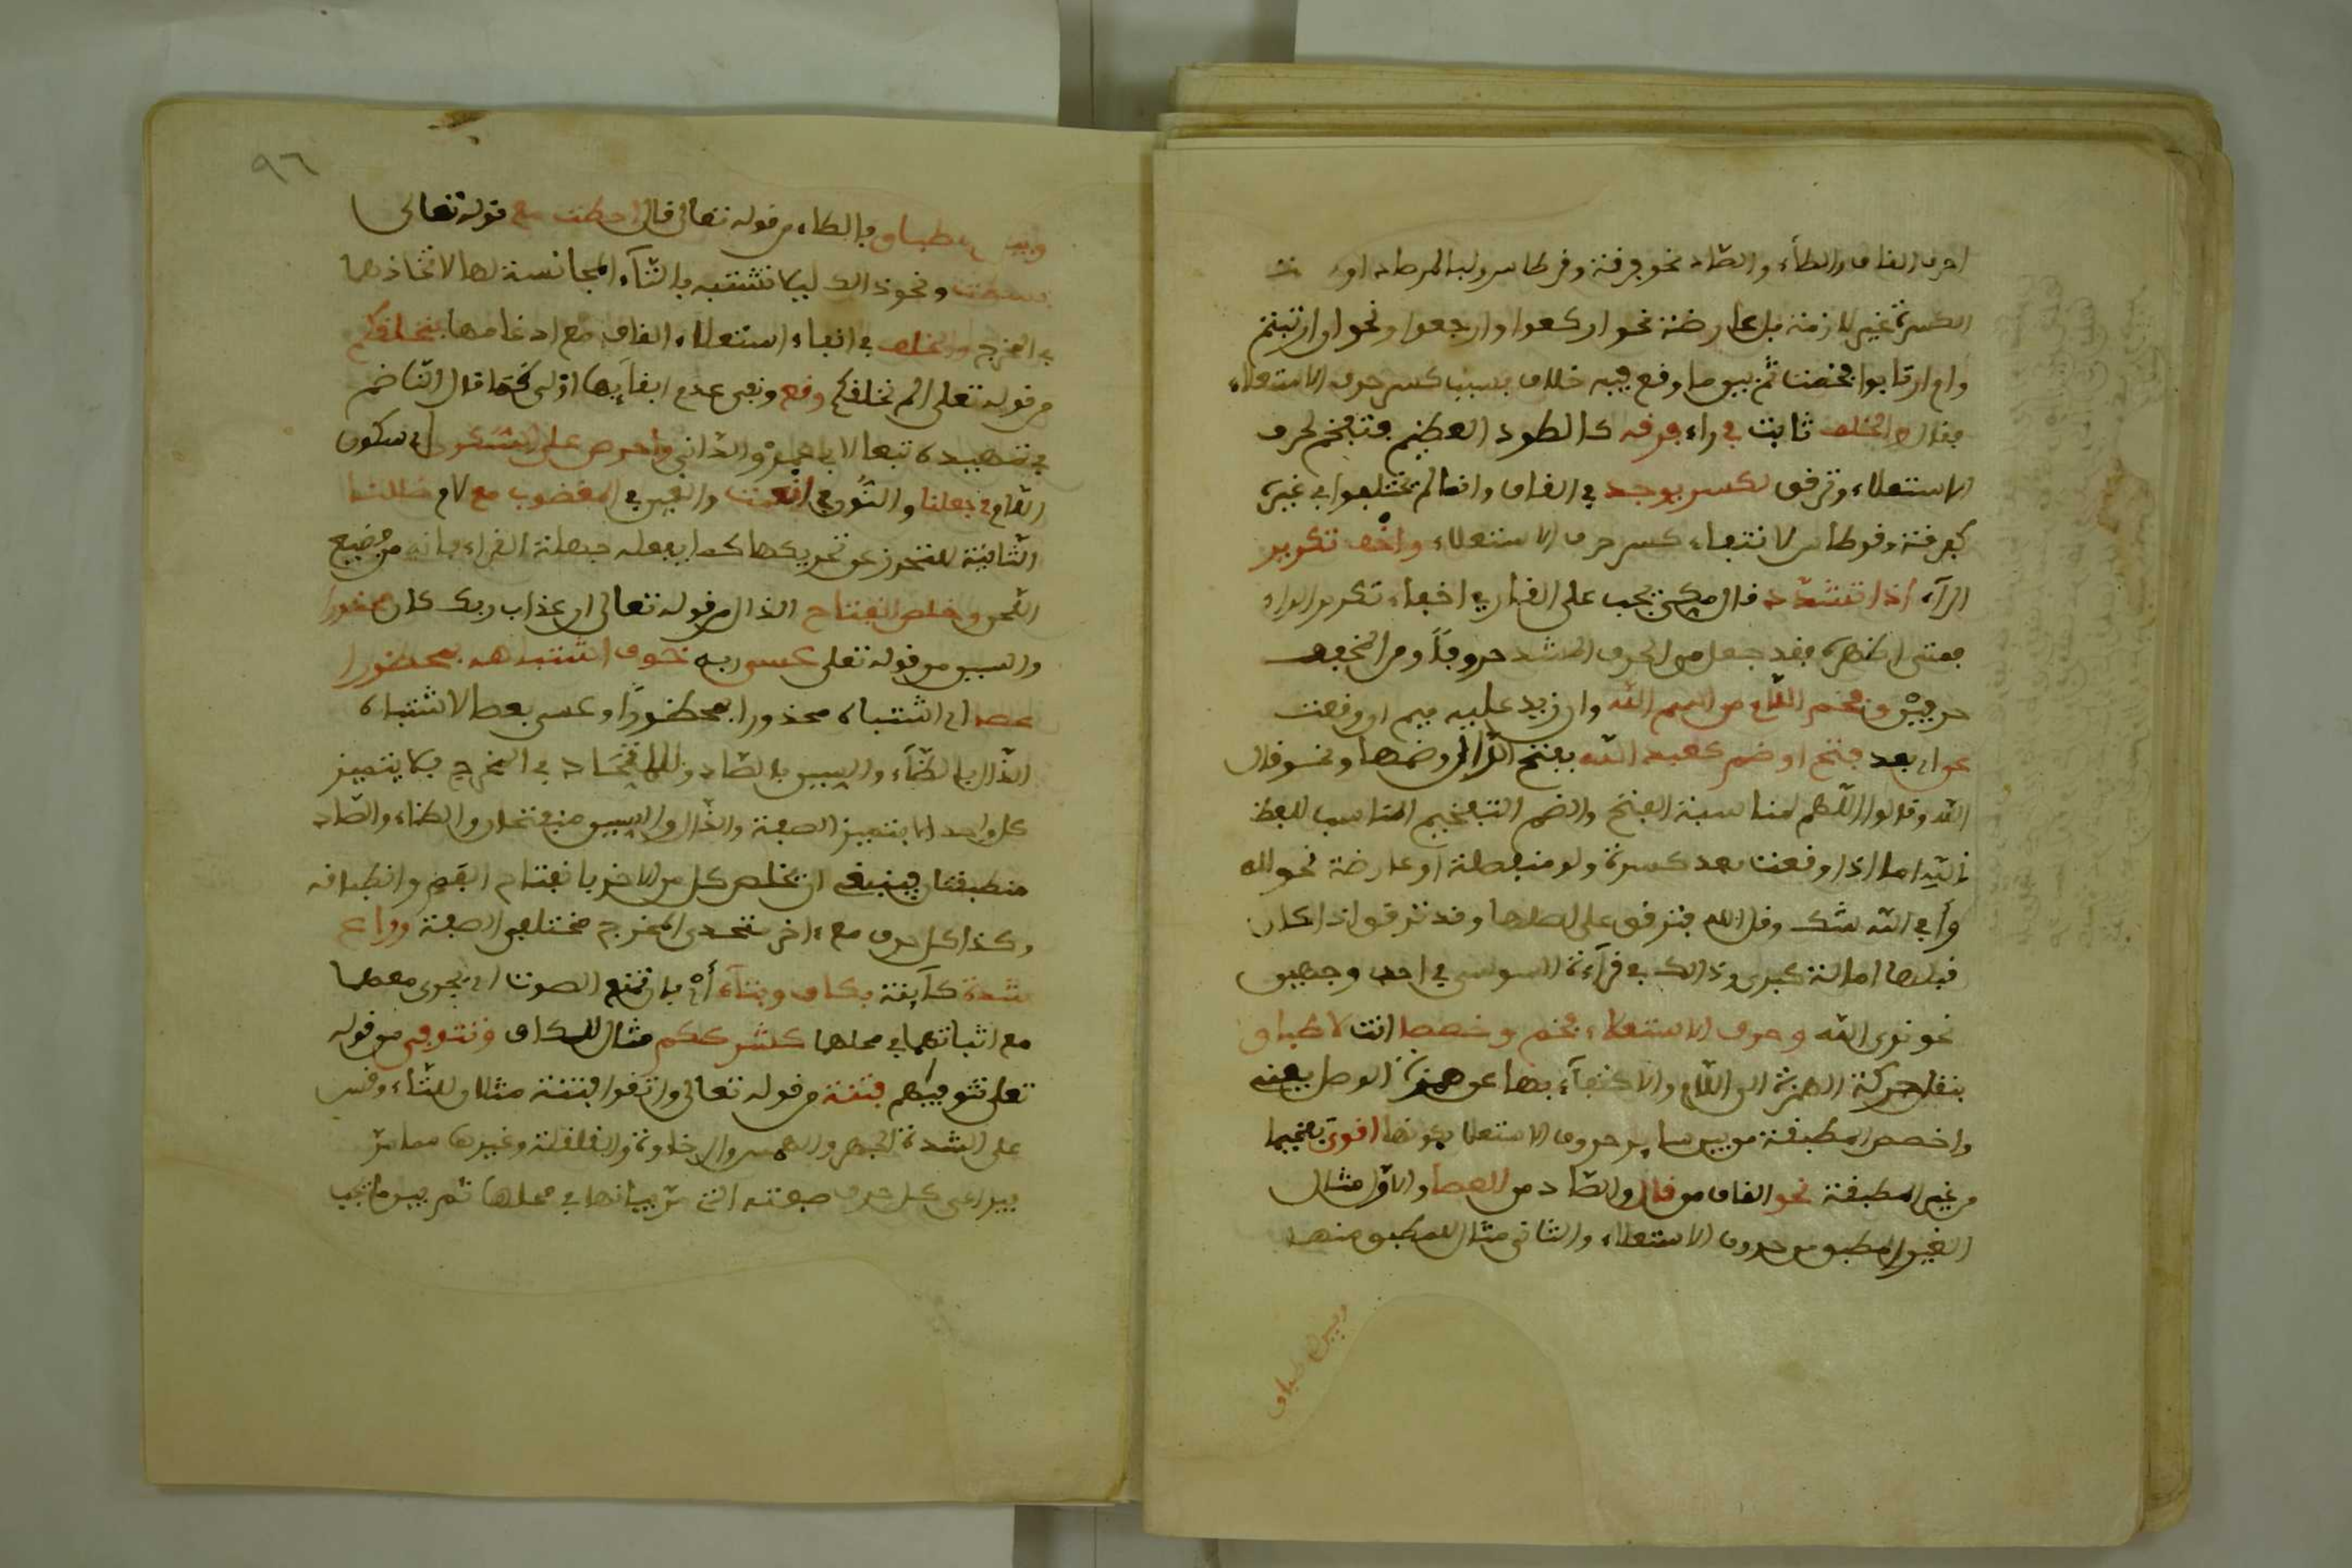 احرف القاف والطاء والصاد نحو فرقة وقرطاس ولبالمرصاد او
الكسرة غير لازمة بل عارضة نحو اركعوا وارجعوا ونحو ان ارتبتم
وام ارتابوا فخمت ثم بين ما وقع فيه خلاف بسبب كسر حرف الاستعلاء
فقال والخلف ثابت في راء فرق كالطود العظيم فتفخم لحرف
الاستعلاء وترقق لكسر يوجد في القاف وانما لم يختلفوا في غيره
كفرقة وقرطاس لانتفاء كسر حرف الاستعلاء واخف تكرير
الراء اذا تشدد قال مكي يجب على القارئ اخفاء تكرير الراء
فمتى اظهره فقد جعل من الحرف المشدد حروفا ومن المخفف
حرفين وفخم اللام من اسم الله وان زيد عليه ميم ان وقعت
عن اي بعد فتح او ضم كعبد الله بفتح الدال وضمها ونحو قال
الله وقالوا اللهم لمناسبة الفتح والضم التفخيم المناسب للفظ
اما اذا وقعت بعد كسرة ولو منفصلة او عارضة نحو لله
وأفي الله شك وقل الله فترقق على اصلها وقد ترقق اذا كان
قبلها امالة كبرى وذلك في قراءة السوسي في احد وجهين
نحو نرى الله وحرف الاستعلاء فخم وخصصا انت لاطباق
بنقل حركة الهمزة الى اللام والاكتفاء بها عن همزة الوصل يعني
واخصص المطبقة من بين ساير حروف الاستعلا بكونها اقوى تفخيما
من غير المطبقة نحو القاف من قال والصاد من العصا والاول مثال
الغير المطبق من حروف الاستعلاء والثاني مثال للمطبق منها
وبين اطباق
٩٦
وبين اطباق بالطاء من قوله تعالى قال احطت مع قوله تعالى
بسطت ونحو ذلك ليلا تشتبه بالتاء المجانسة لها لاتحادها
في المخرج والخلف في ابقاء استعلاء القاف مع ادغامها بنخلقكم
من قوله تعلى الم نخلقكم وقع ونعى عدم ابقايها اولى كما قال الناضم
في تمهيده تبعا لابي عمرو الداني واحرص على السكون اي سكون
اللام في جعلنا والنون في انعمت والغين في المغضوب مع لام ضللنا
الثانية للتحرز عن تحريكها كما يفعله جهلة القراء فانه من فضيع
اللحن وخلص انفتاح الذال من قوله تعالى ان عذاب ربك كان محذورا
والسين من قوله تعلى عسى ربه خوف اشتباهه بمحظورا
عصا اي اشتباه محذورا بمحظورا وعسى بعصا لاشتباه
الذال بالظاء والسين بالصاد للاتحاد في المخرج فلا يتميز
كل واحد الا بتميز الصفة والذال والسين منفتحان والظاء والصاد
منطبقتان فينبغي ان يخلص كل من الاخر بانفتاح الفم وانطباقه
وكذا كل حرف مع ءاخر متحدي المخرج مختلفي الصفة وراع
شدة كآينة بكاف وبتاء اي بان تمنع الصوت ان يجري معهما
مع اثباتهما في محلهما كشرككم مثال للكاف وتتوفى من قوله
تعلى تتوفيهم فتنة من قوله تعالى واتقوا فتنة مثالان للتاء وقس
على الشدة الجهر والهمس والرخاوة والقلقلة وغيرها مما مر
فيراعى كل حرف صفته التي مر بيانها في محلها ثم بين ما يجب